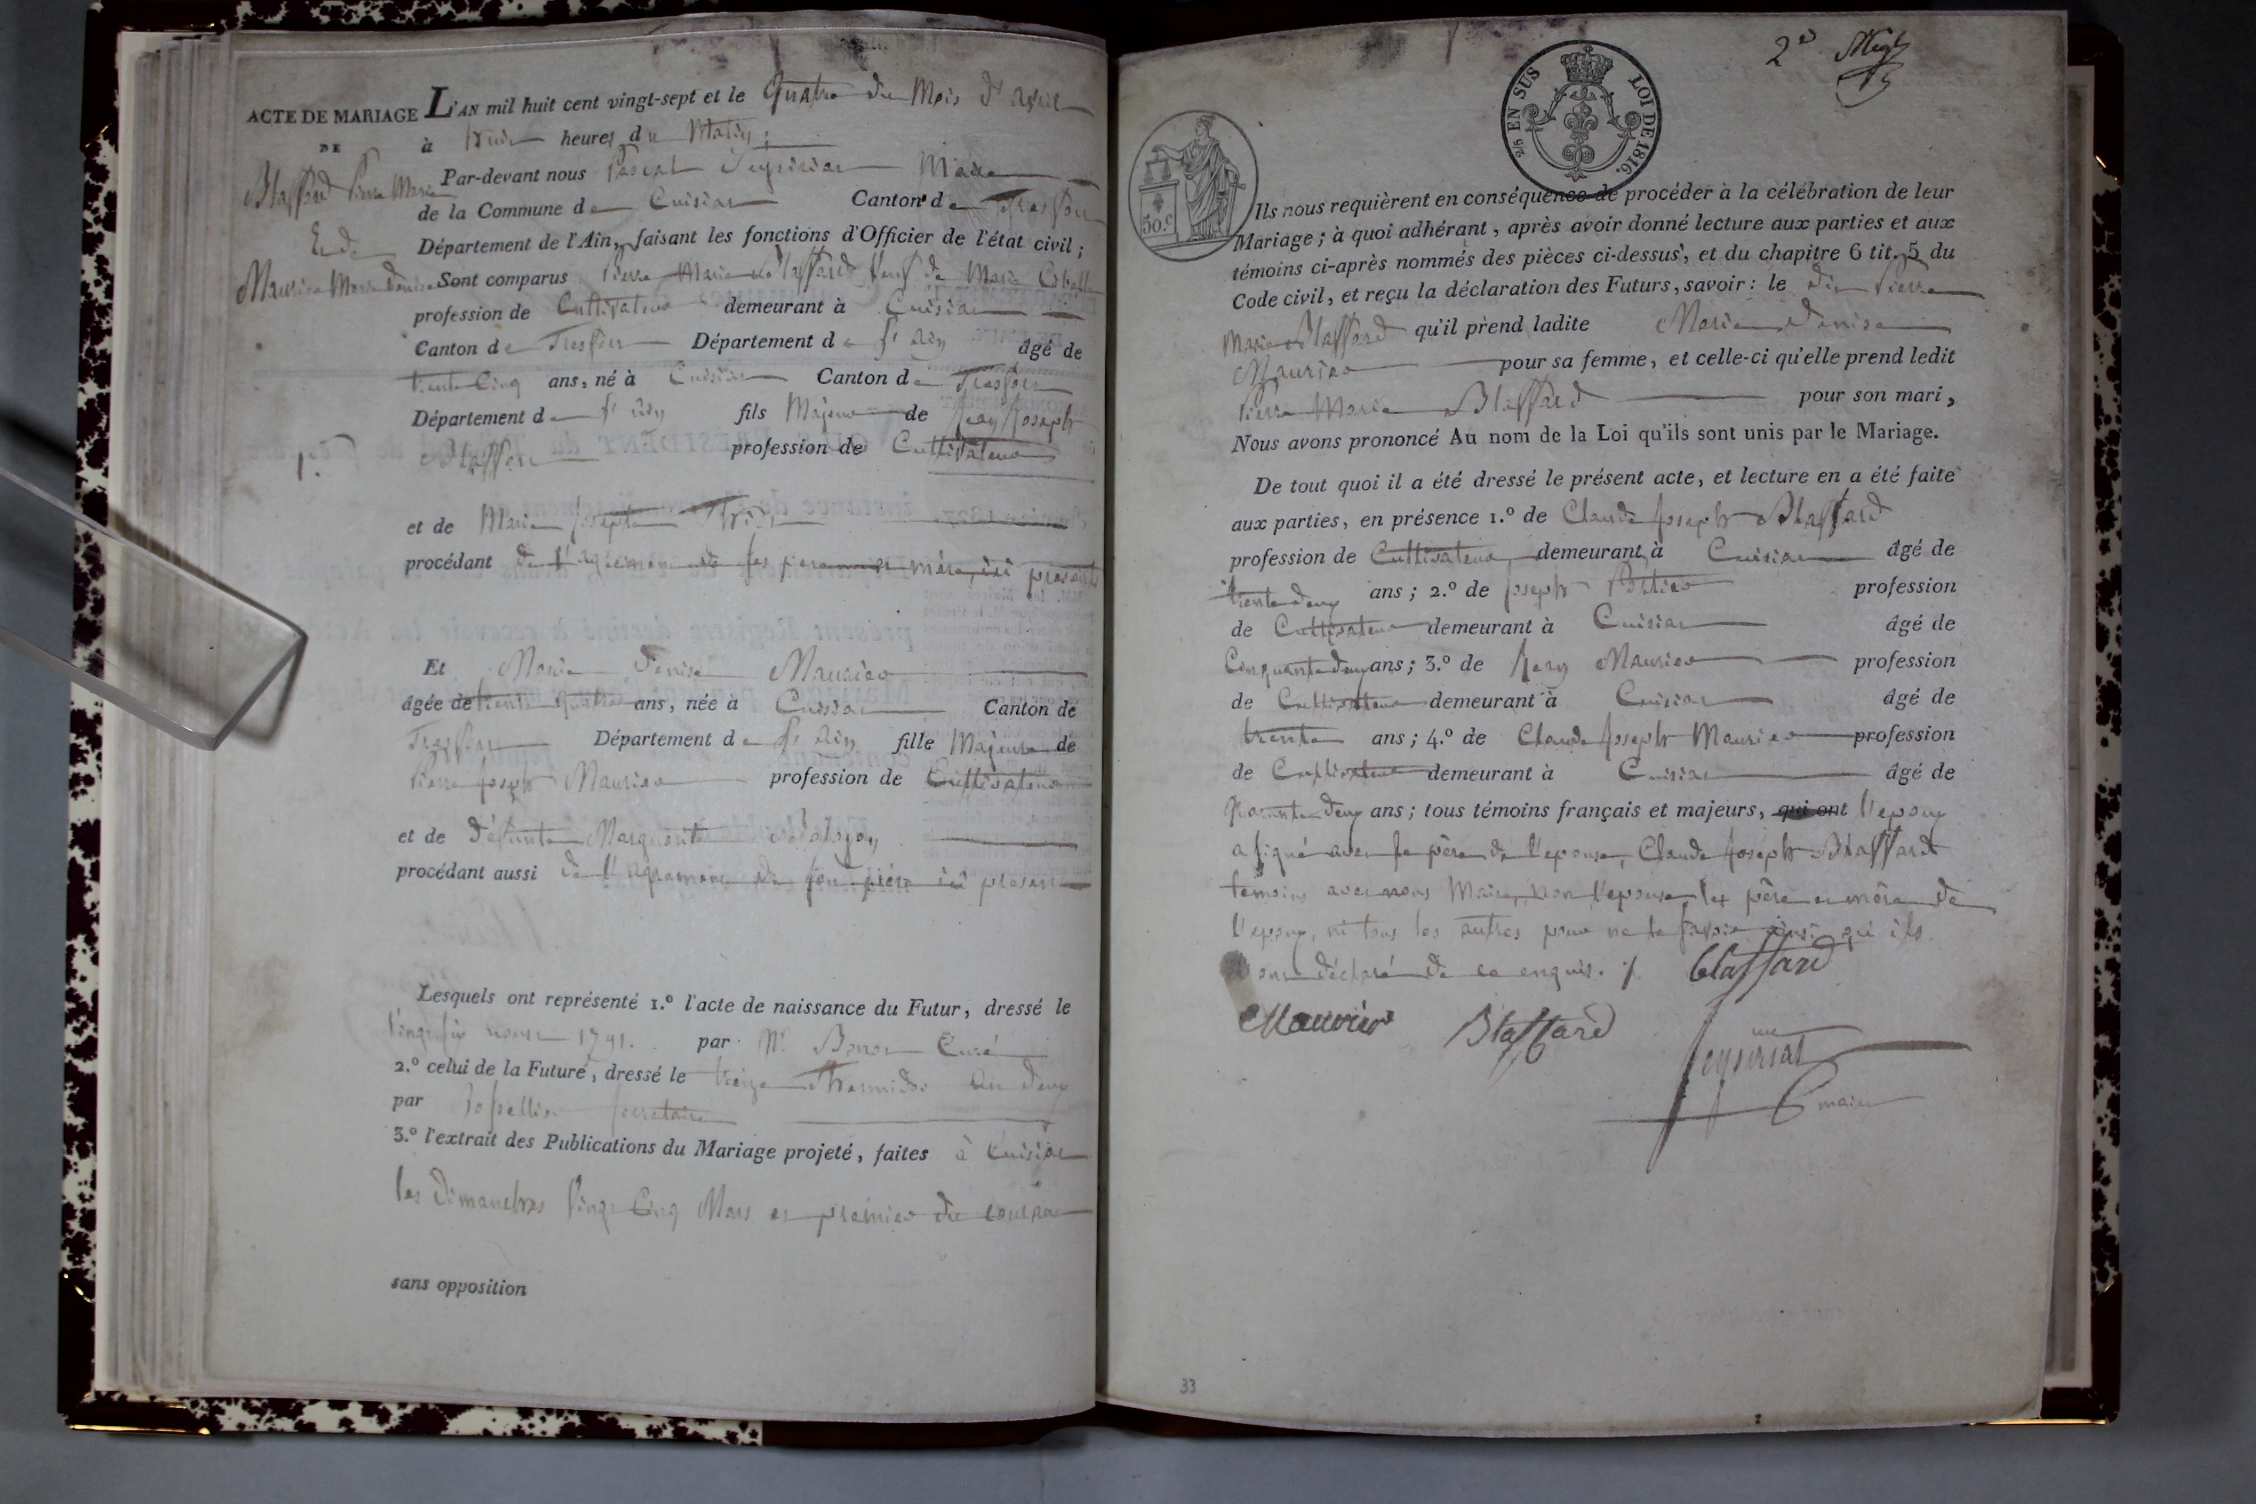 ACTE DE MARIAGE
DE
Blaffard Pierre Marie
Et de
Maurier Marie Denise
1.
L'AN mil huit cent vingt-sept et le Quatre du Mois d'avril
à huit heures du Matin;
Par-devant nous Pascal Maire
de la Commune de Cuisiat Canton de Treffort
Département de l'Ain, faisant les fonctions d'Officier de l'état civil;
Sont comparus Pierre Marie Blaffard Veuf de Marie
profession de Cultivateur demeurant à Cuisiat
Canton de Treffort Département de l'Ain âgé de
trente Cinq ans, né à Cuisiat Canton de Treffort
Département de l'Ain fils Majeur de Jean Joseph
Blaffard profession de Cultivateur
et de Marie Josephte
procédant de l'agrément de ses père et mère, ici présents
Et Marie Denise Maurier
âgée de trente quatre ans, née à Cuisiat Canton de
Treffort Département de l'Ain fille Majeure de
Pierre Joseph Maurier profession de Cultivateur
et de défunte Marguerite
procédant aussi de l'agrément de son père ici présent
Lesquels ont représenté 1.º l'acte de naissance du Futur, dressé le
1791. par Mr. Curé
2.º celui de la Future, dressé le treize Thermidor an deux
par secretaire
3.º l'extrait des Publications du Mariage projeté, faites à Cuisiat
les dimanches vingt Cinq Mars et premier du courant
sans opposition
2e
2/5 EN SUS LOI DE 1816.
50.c
Ils nous requièrent en conséquence de procéder à la célébration de leur
Mariage; à quoi adhérant, après avoir donné lecture aux parties et aux
témoins ci-après nommés des pièces ci-dessus, et du chapitre 6 tit. 5 du
Code civil, et reçu la déclaration des Futurs, savoir: le dit Pierre
Marie Blaffard qu'il prend ladite Marie Denise
Maurier pour sa femme, et celle-ci qu'elle prend ledit
Pierre Marie Blaffard pour son mari,
Nous avons prononcé Au nom de la Loi qu'ils sont unis par le Mariage.
De tout quoi il a été dressé le présent acte, et lecture en a été faite
aux parties, en présence 1.º de Claude Joseph Blaffard
profession de Cultivateur demeurant à Cuisiat âgé de
trente deux ans; 2.º de Joseph profession
de Cultivateur demeurant à Cuisiat âgé de
Cinquante deux ans; 3.º de Jean Maurier profession
de Cultivateur demeurant à Cuisiat âgé de
trente ans; 4.º de Claude Joseph Maurier profession
de Cultivateur demeurant à Cuisiat âgé de
quarante deux ans; tous témoins français et majeurs, qui ont l'epoux
a signé avec le père de l'epouse, Claude Joseph Blaffard
temoins avec nous Maire, non l'epouse, les père et mère de
l'epoux, ni tous les autres pour ne le savoir ainsi qu'ils
ont déclaré de ce enquis. Blaffard
Maurier Blaffard
maire
33